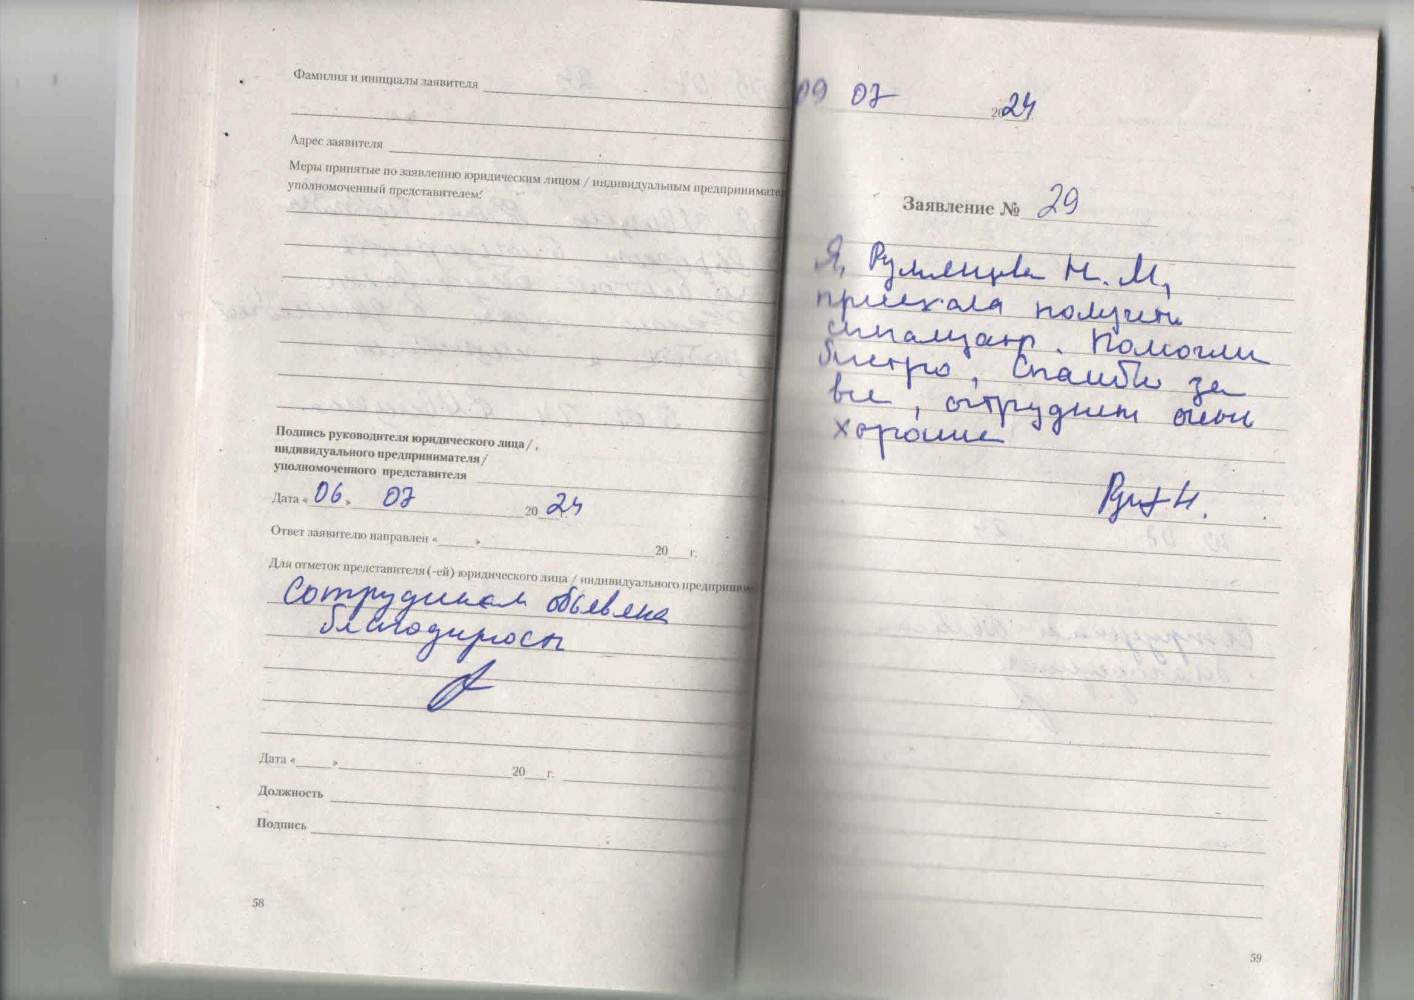 Фамилия и инициалы заявителя
Адрес заявителя
Меры принятые по заявлению юридическим лицом / индивидуальным предпринимате
уполномоченный представителем:
Подпись руководителя юридического лица / ,
индивидуального предпринимателя /
уполномоченного представителя
Дата « 06 » 07 20 24 г.
Ответ заявителю направлен « » 20 г.
Для отметок представителя (-ей) юридического лица / индивидуального предприним
Сотрудникам объявлена
благодарность
Дата « » 20 г.
Должность
Подпись
58
09 07 2024
Заявление № 29
Я, Румянцева Н. М,
приехала получить
. Помогли
быстро, Спасибо за
все, сотрудники очень
хорошие
59